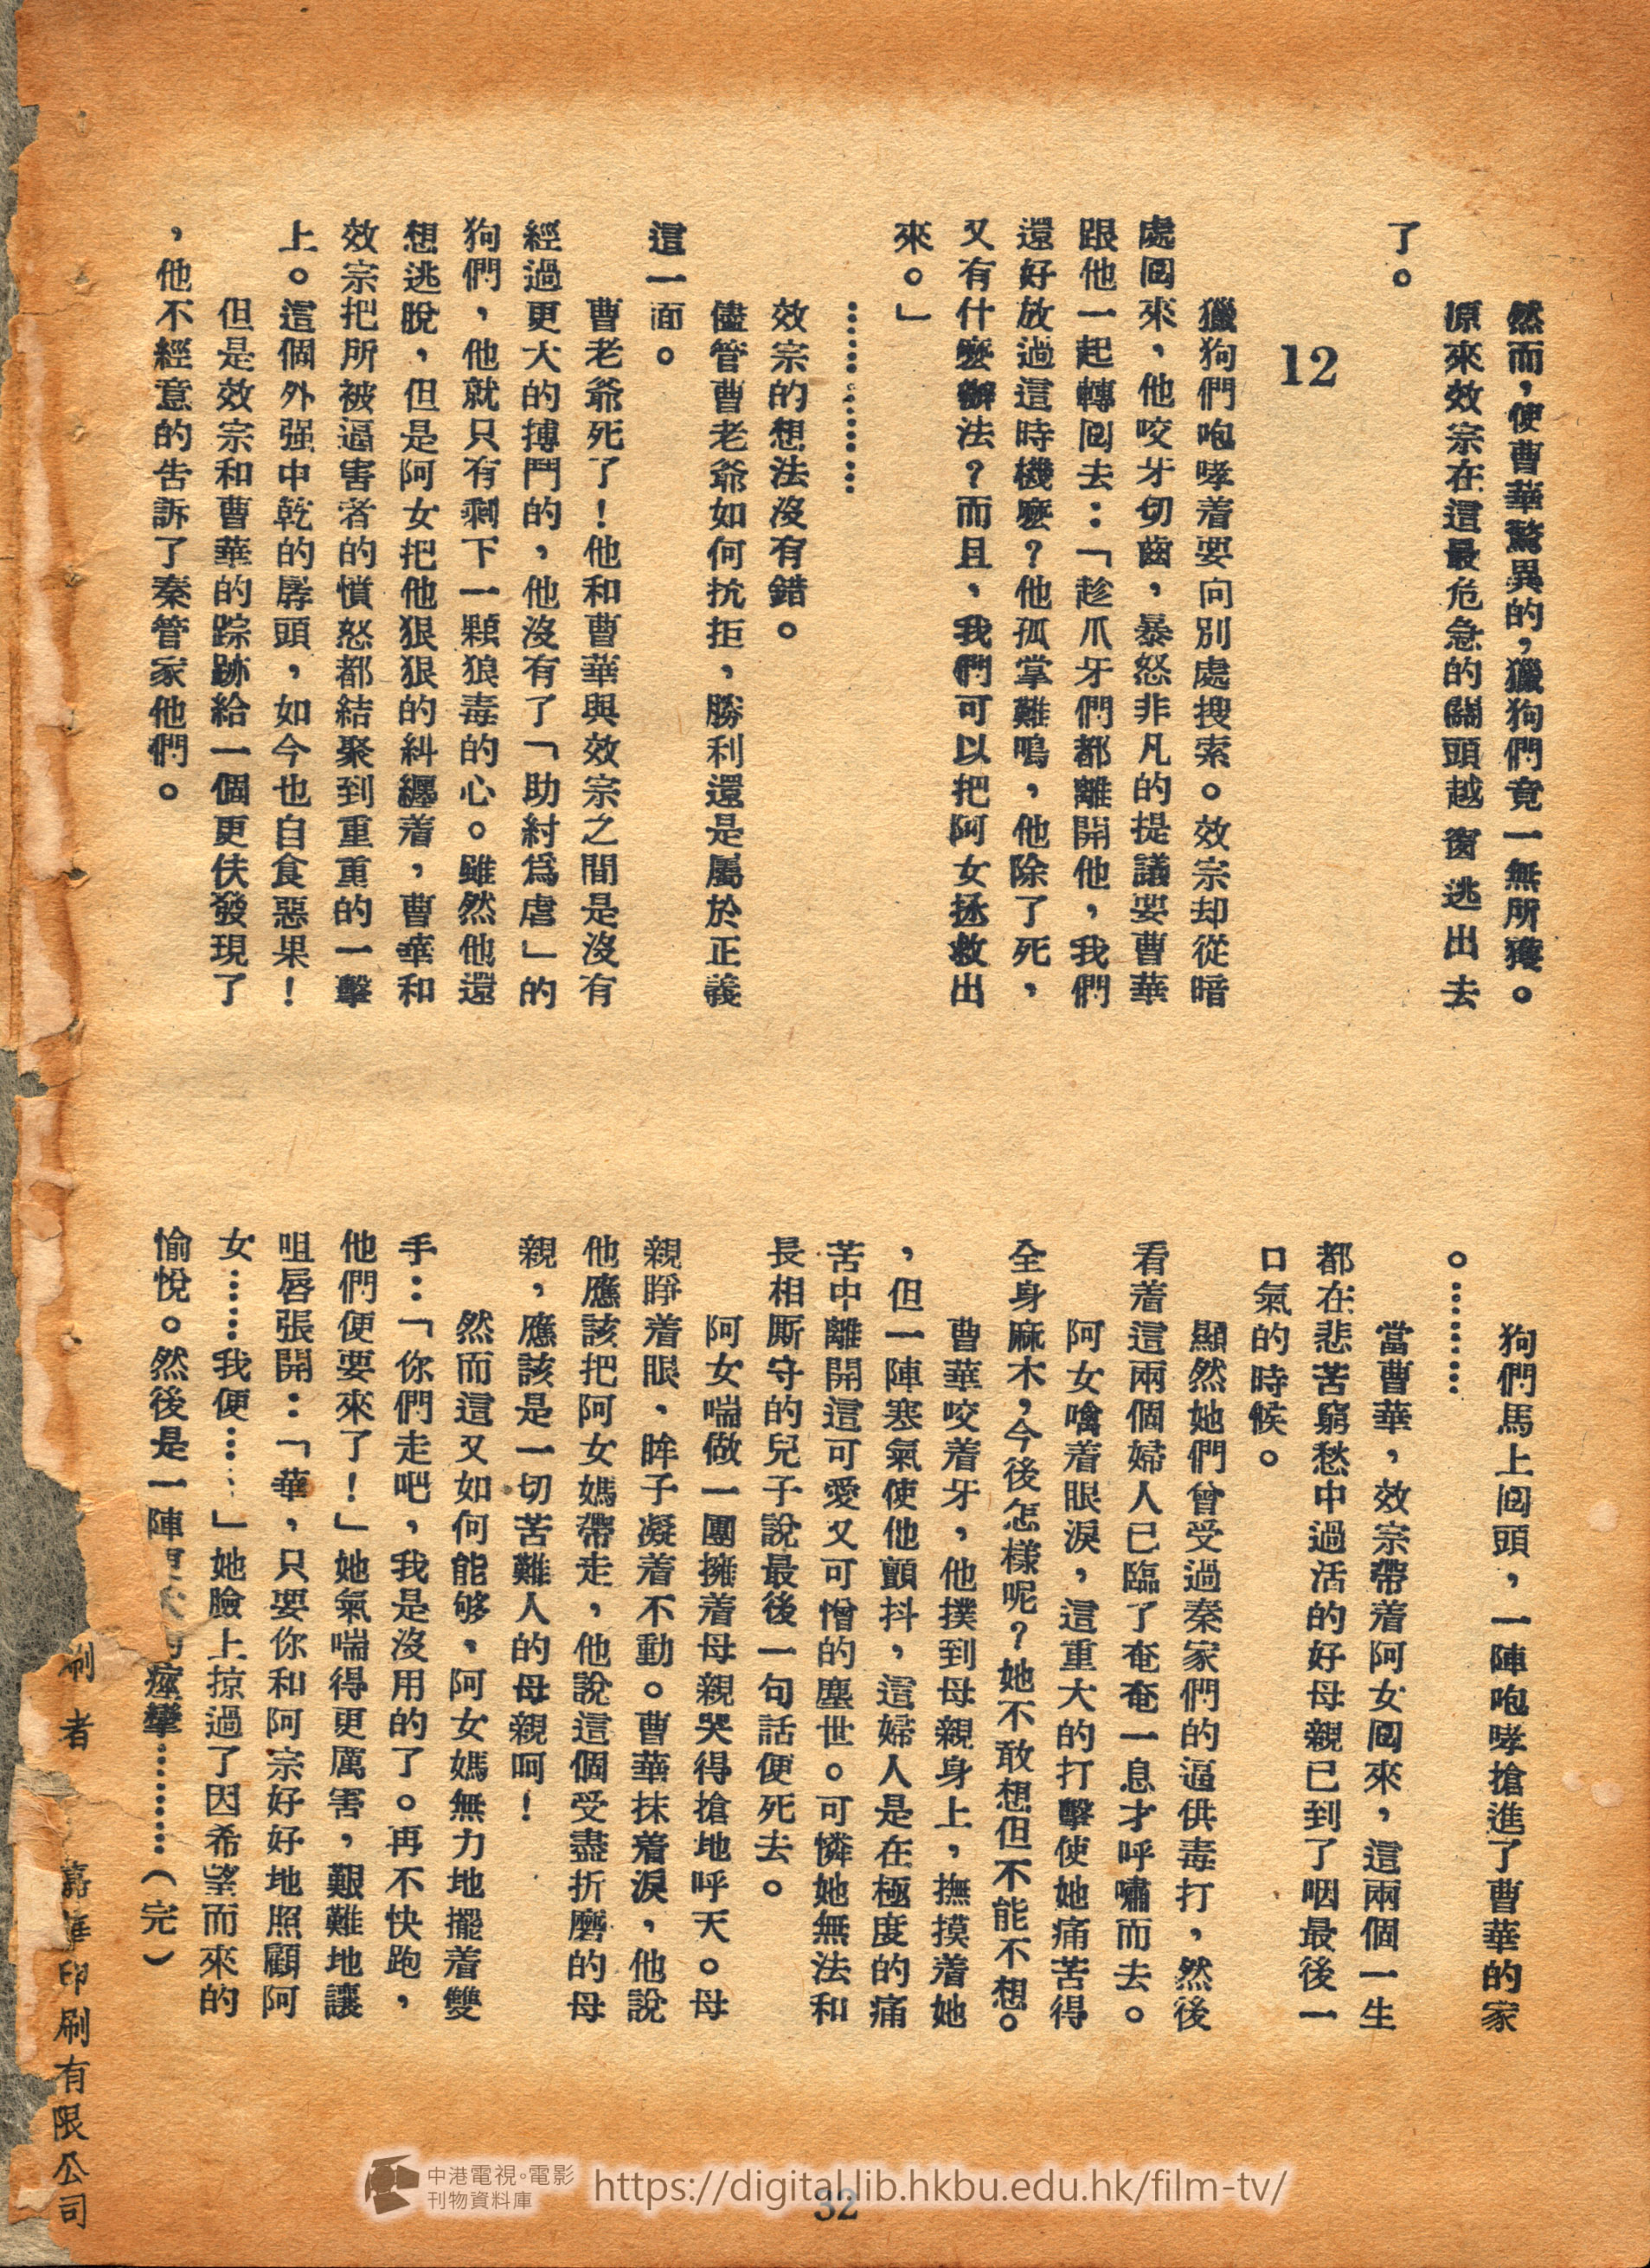 然而，使曹華驚異的，獵狗們竟一無所獲。
原來效宗在這最危急的關頭越窗逃出去
了。
12
獵狗們咆哮着要向別處搜索。效宗却從暗
處囘來，他咬牙切齒，暴怒非凡的提議要曹華
跟他一起轉囘去：「趁爪牙們都離開他，我們
還好放過這時機麼？他孤掌難鳴，他除了死，
又有什麼辦法？而且，我們可以把阿女拯救出
來。」
…………
效宗的想法沒有錯。
儘管曹老爺如何抗拒，勝利還是屬於正義
這一面。
曹老爺死了！他和曹華與效宗之間是沒有
經過更大的搏鬥的，他沒有了「助紂爲虐」的
狗們，他就只有剩下一顆狼毒的心。雖然他還
想逃脫，但是阿女把他狠狠的糾纒着，曹華和
效宗把所被逼害者的憤怒都結聚到重重的一擊
上。這個外强中乾的孱頭，如今也自食惡果！
但是效宗和曹華的踪跡給一個更伕發現了
，他不經意的告訴了秦管家他們。
狗們馬上囘頭，一陣咆哮搶進了曹華的家
。………
當曹華，效宗帶着阿女囘來，這兩個一生
都在悲苦窮愁中過活的好母親已到了咽最後一
口氣的時候。
顯然她們曾受過秦家們的逼供毒打，然後
看着這兩個婦人已臨了奄奄一息才呼嘯而去。
阿女噙着眼淚，這重大的打擊使她痛苦得
全身麻木，今後怎樣呢？她不敢想但不能不想。
曹華咬着牙，他撲到母親身上，撫摸着她
，但一陣寒氣使他顫抖，這婦人是在極度的痛
苦中離開這可愛又可憎的塵世。可憐她無法和
長相厮守的兒子說最後一句話便死去。
阿女喘做一團擁着母親哭得搶地呼天。母
親睜着眼、眸子凝着不動。曹華抹着淚，他說
他應該把阿女媽帶走，他說這個受盡折磨的母
親，應該是一切苦難人的母親呵！
然而這又如何能够，阿女媽無力地擺着雙
手：「你們走吧，我是沒用的了。再不快跑，
他們便要來了！」她氣喘得更厲害，艱難地讓
咀唇張開：「華，只要你和阿宗好好地照顧阿
女……我便……」她臉上掠過了因希望而來的
愉悅。然後是一陣痙攣………（完）
刷者　嘉華印刷有限公司
32
中港電視。電影
刊物資料庫
https://digital.lib.hkbu.edu.hk/film-tv/